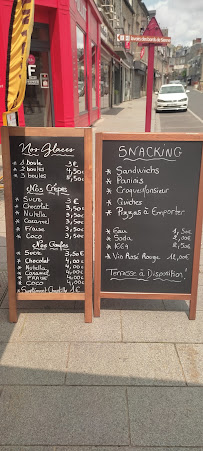 Nos Glaces
1 boule 3€
2 boules 4,50€
3 boules 5,50€
Nos Crêpes
Sucre 3€
Chocolat 3,50€
Nutella 3,50€
Caramel 3,50€
Fraise 3,50€
Coco 3,50€
Nos Gaufres
Sucre 3,50€
Chocolat 4,00€
Nutella 4,00€
Caramel 4,00€
FRAISE 4,00€
COCO 4,00€
Supplément Chantilly 1€
SNACKING
* Sandwichs
* Paninis
* Croque Monsieur
* Quiches
* Pizzas à Emporter
* Eau 1,50€
* Soda 2,00€
* 1664
* Vin Rosé Rouge 12,00€
Terrasse à Disposition